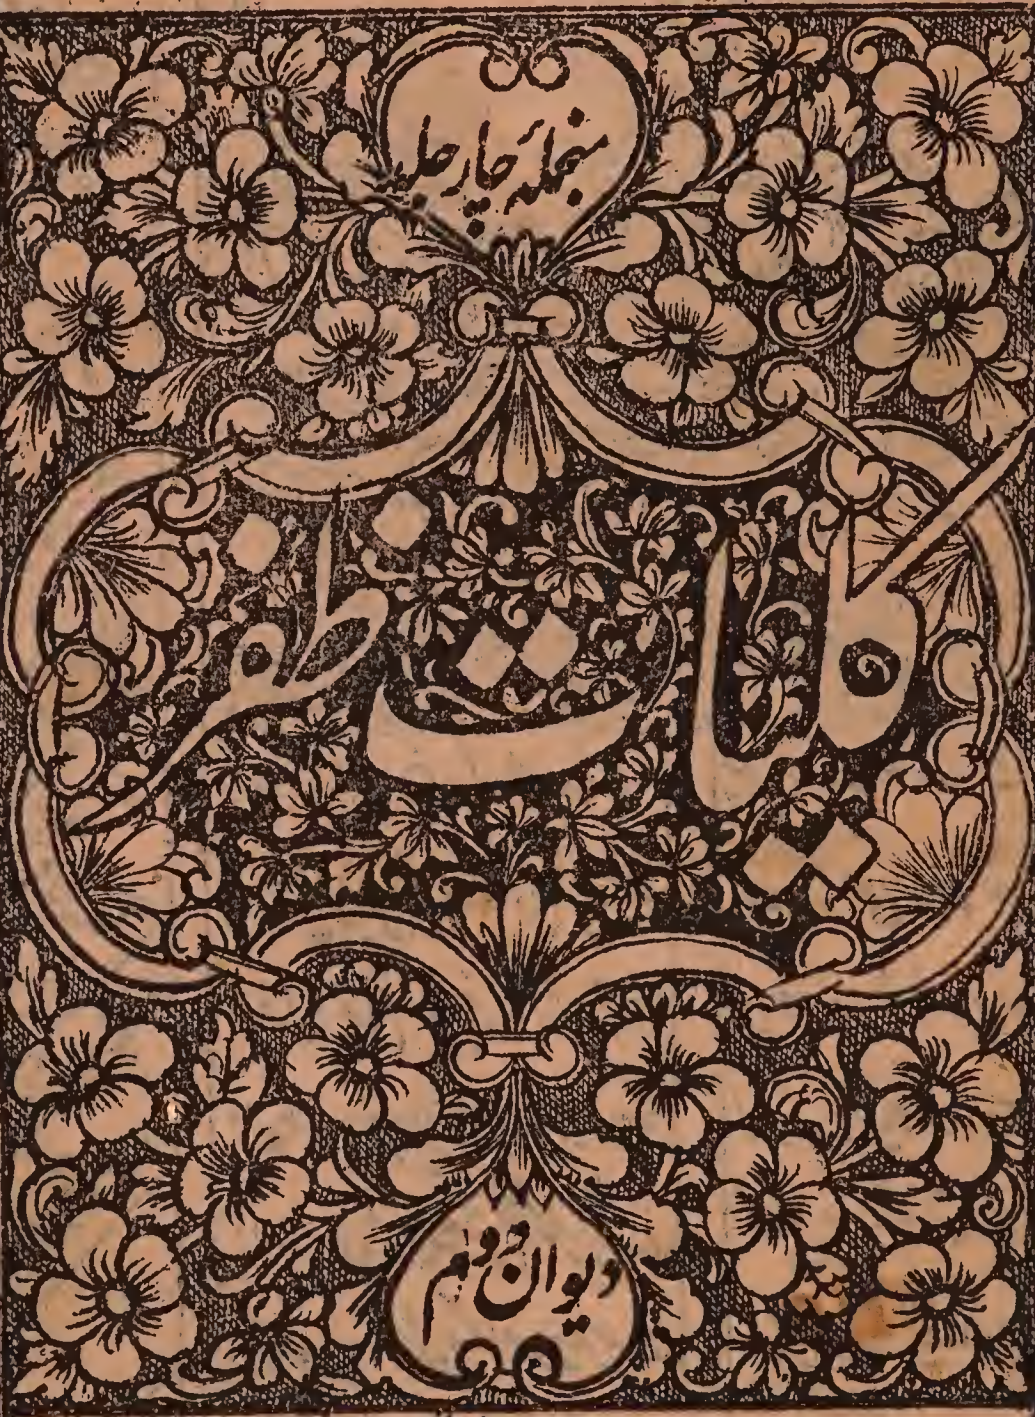 منجملۂ چار جلد
کلیات ظفر
دیوان دوم